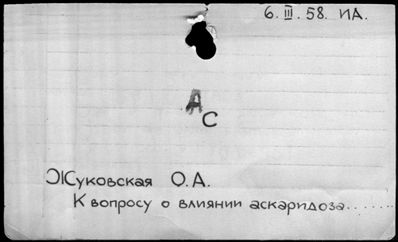 6.III.58. ИА.
А
С
Жуковская О.А.
К вопросу о влиянии аскаридоза.......